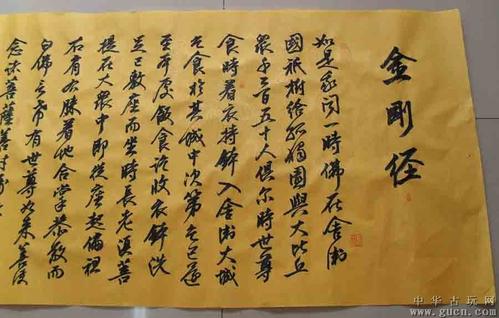 金剛经
如是我聞一時佛在舍衛
國祇樹給孤獨園與大比丘
眾千二百五十人俱尔時世尊
食時着衣持鉢入舍衛大城
乞食於其城中次第乞已還
至本處飯食訖收衣鉢洗
足已敷座而坐時長老須菩
提在大眾中即從座起偏袒
右肩右膝着地合掌恭敬而
白佛言希有世尊如来善護
念诸菩薩善付
中华古玩网
www.gucn.com